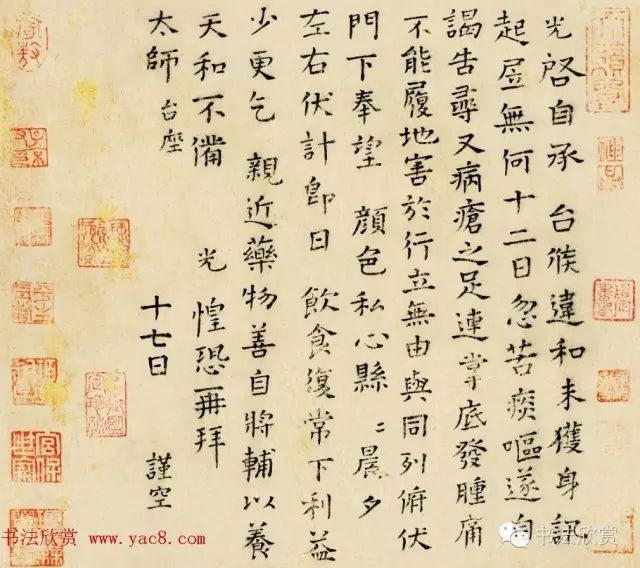 光啓自承 台候違和未獲身訊
起居無何十二日忽苦痰嘔遂自
謁告尋又病瘡之足連掌底發腫痛
不能履地害於行立無由與同列俯伏
門下奉望 顏色私心縣〻晨夕
左右伏計即日 飲食復常下利益
少更乞 親近藥物善自將輔以養
天和不備 光 惶恐再拜
太師 台座 十七日 謹空
书法欣赏 www.yac8.com
书法欣赏